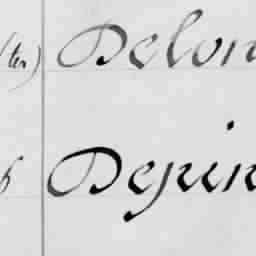 ter) Delon
Dejuin